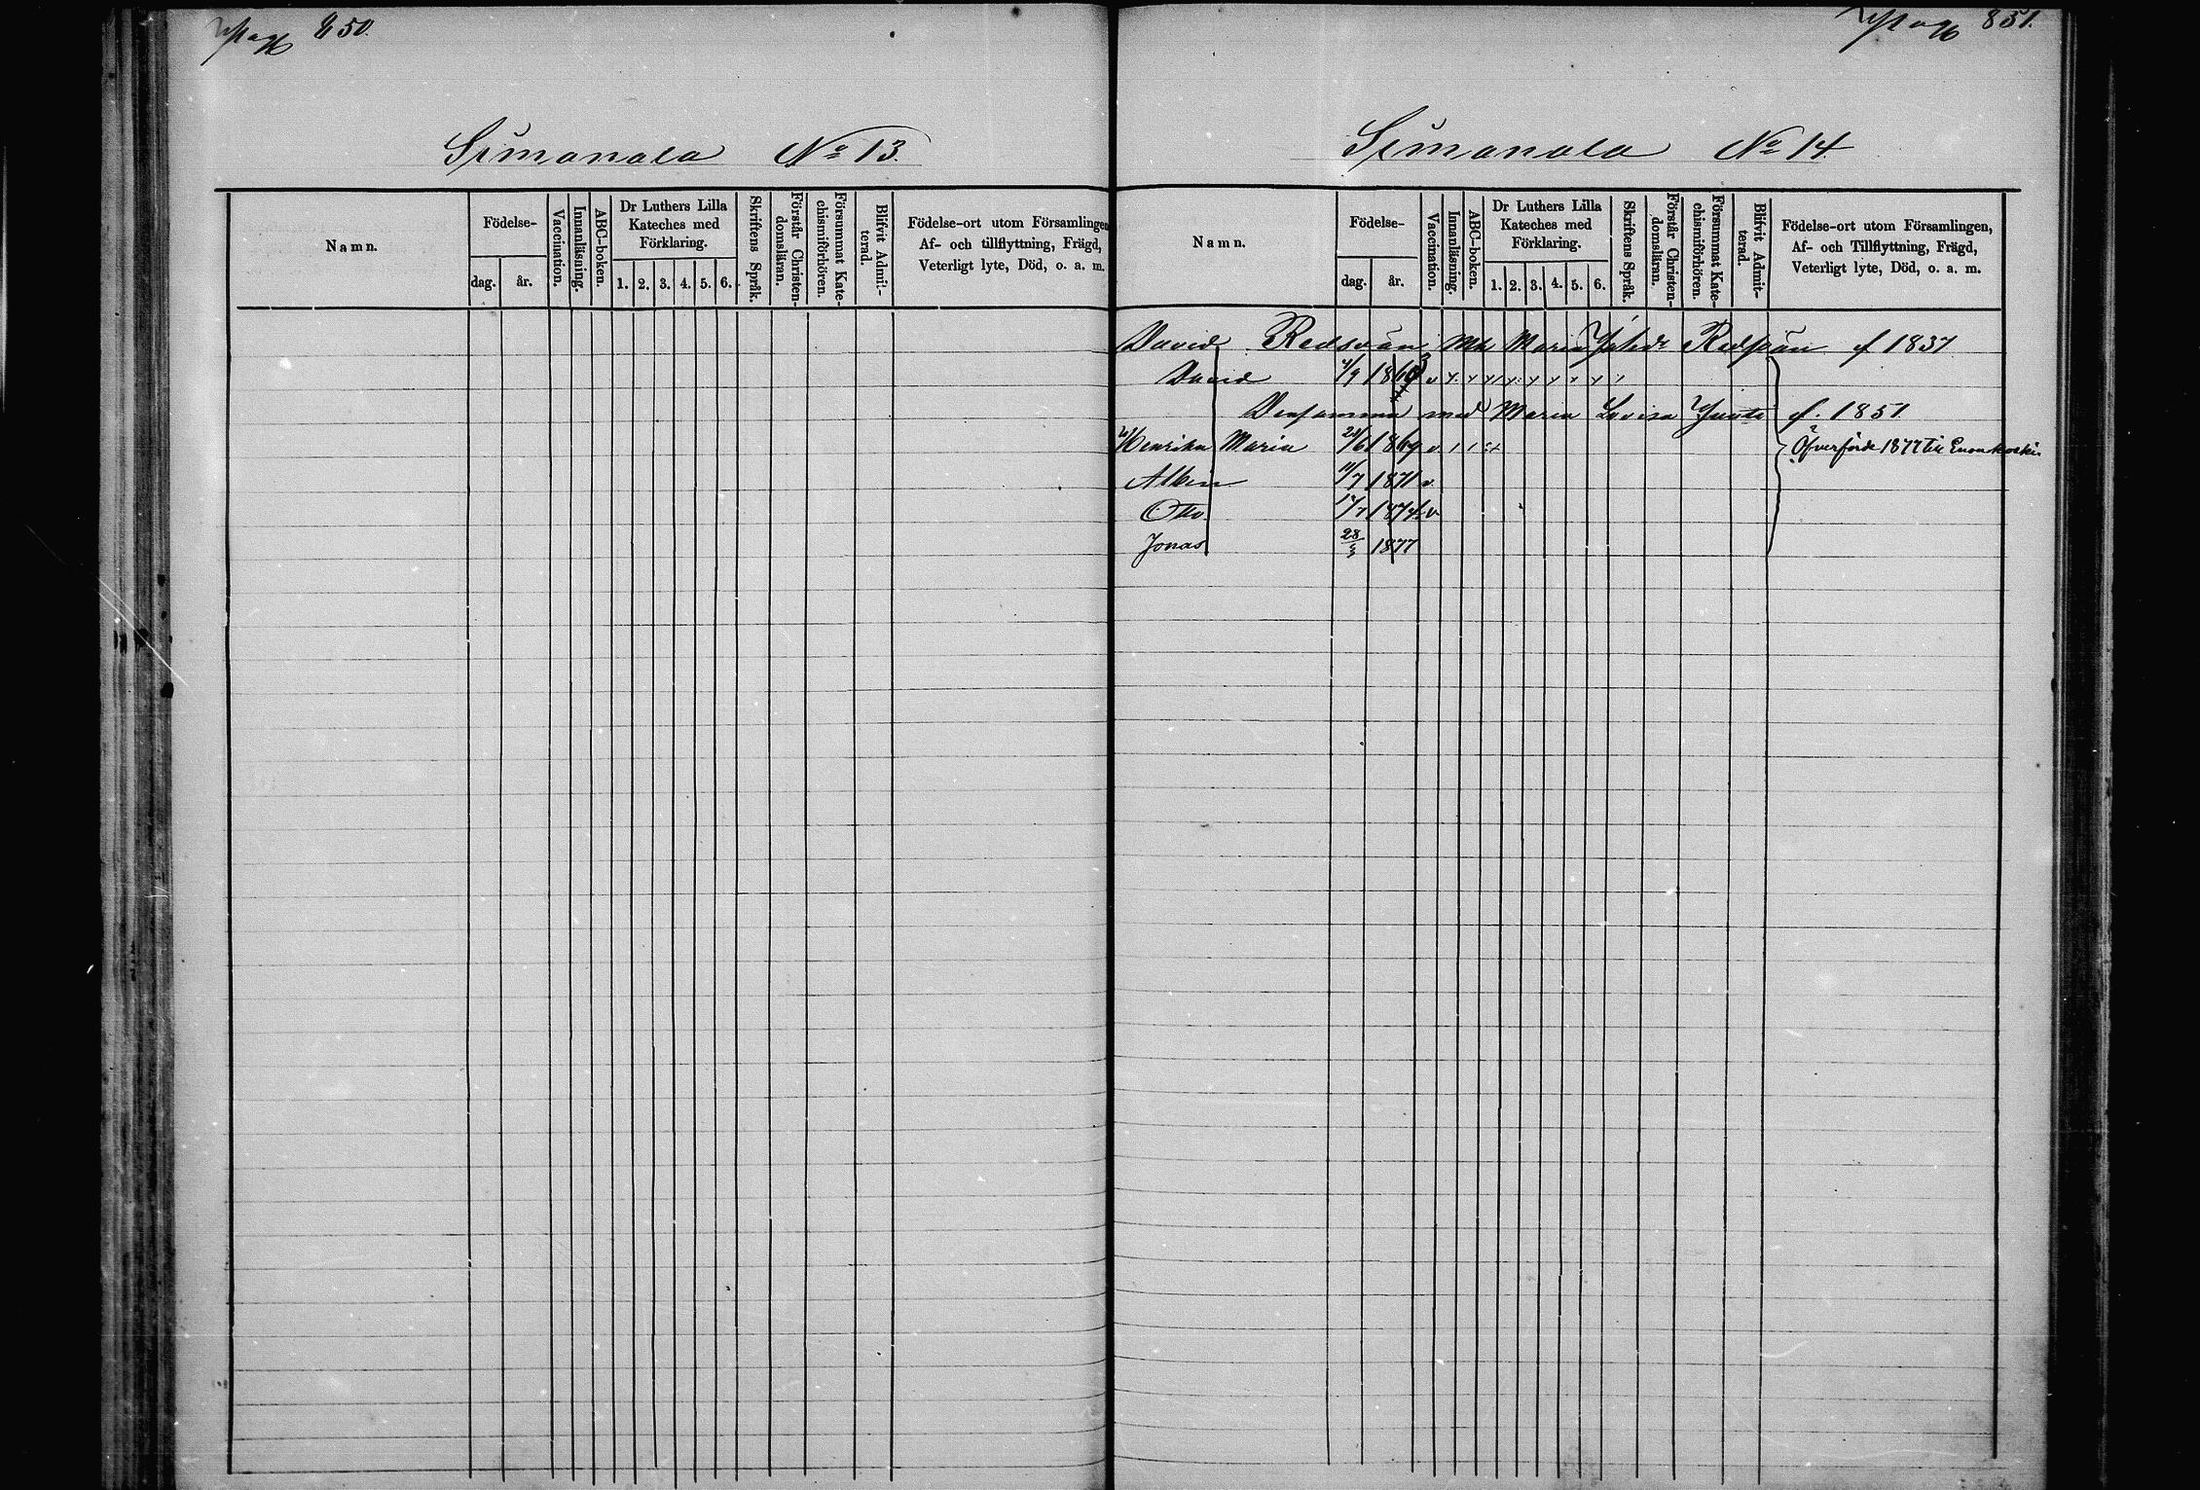 850.
Simanala No 13.
Namn.
Födelse-
dag.
år.
Vaccination.
Innanläsning.
ABC-boken.
Dr Luthers Lilla
Kateches med
Förklaring.
1. 2. 3. 4. 5. 6.
Skriftens Språk.
Förstår Christen-
domsläran.
Försummat Kate-
chismiförhören.
Blifvit Admit-
terad.
Födelse-ort utom Församlingen
Af- och tillflyttning, Frägd,
Veterligt lyte, Död, o. a. m.
851.
Simanala No 14.
Namn.
Födelse-
dag.
år.
Vaccination.
Innanläsning.
ABC-boken.
Dr Luthers Lilla
Kateches med
Förklaring.
1. 2. 3. 4. 5. 6.
Skriftens Språk.
Förstår Christen-
domsläran.
Försummat Kate-
chismiförhören.
Blifvit Admit-
terad.
Födelse-ort utom Församlingen,
Af- och Tillflyttning, Frägd,
Veterligt lyte, Död, o. a. m.
David Redsvän Maria f 1837
David
med Maria Lovisa f. 1851
Henrika Maria 1869 v Öfverförde 1877 till Enonkoski
Albin 1871 v
Otto 1874 v
Jonas 1877